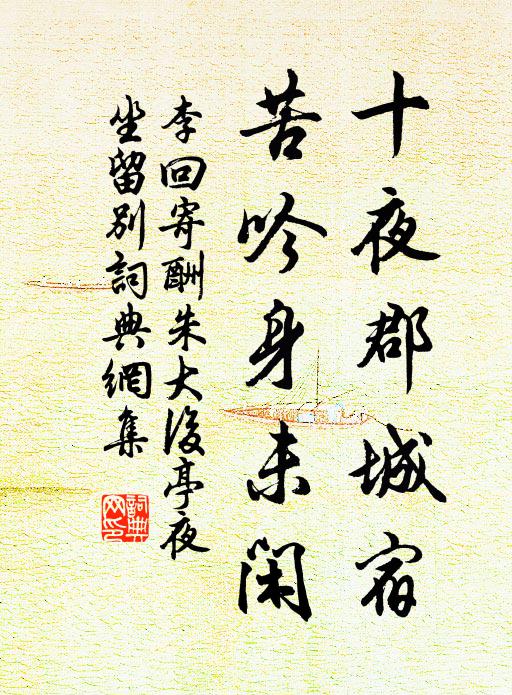 十夜郡城宿
苦吟身未閑
李回寄酬朱大後亭夜
坐留別詞典網集
詞典
网印